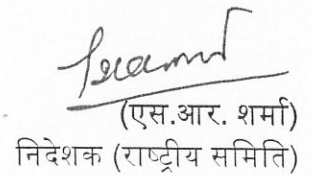 (एस.आर. शर्मा)
निदेशक (राष्ट्रीय समिति)